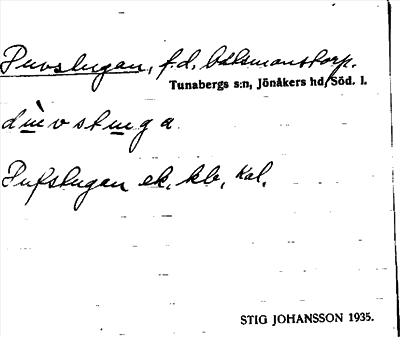 Puvstugan, f.d. båtsmanstorp.
Tunabergs s:n, Jönåkers hd, Söd. l.
Pufstugan ek. kb, Kal.
STIG JOHANSSON 1935.